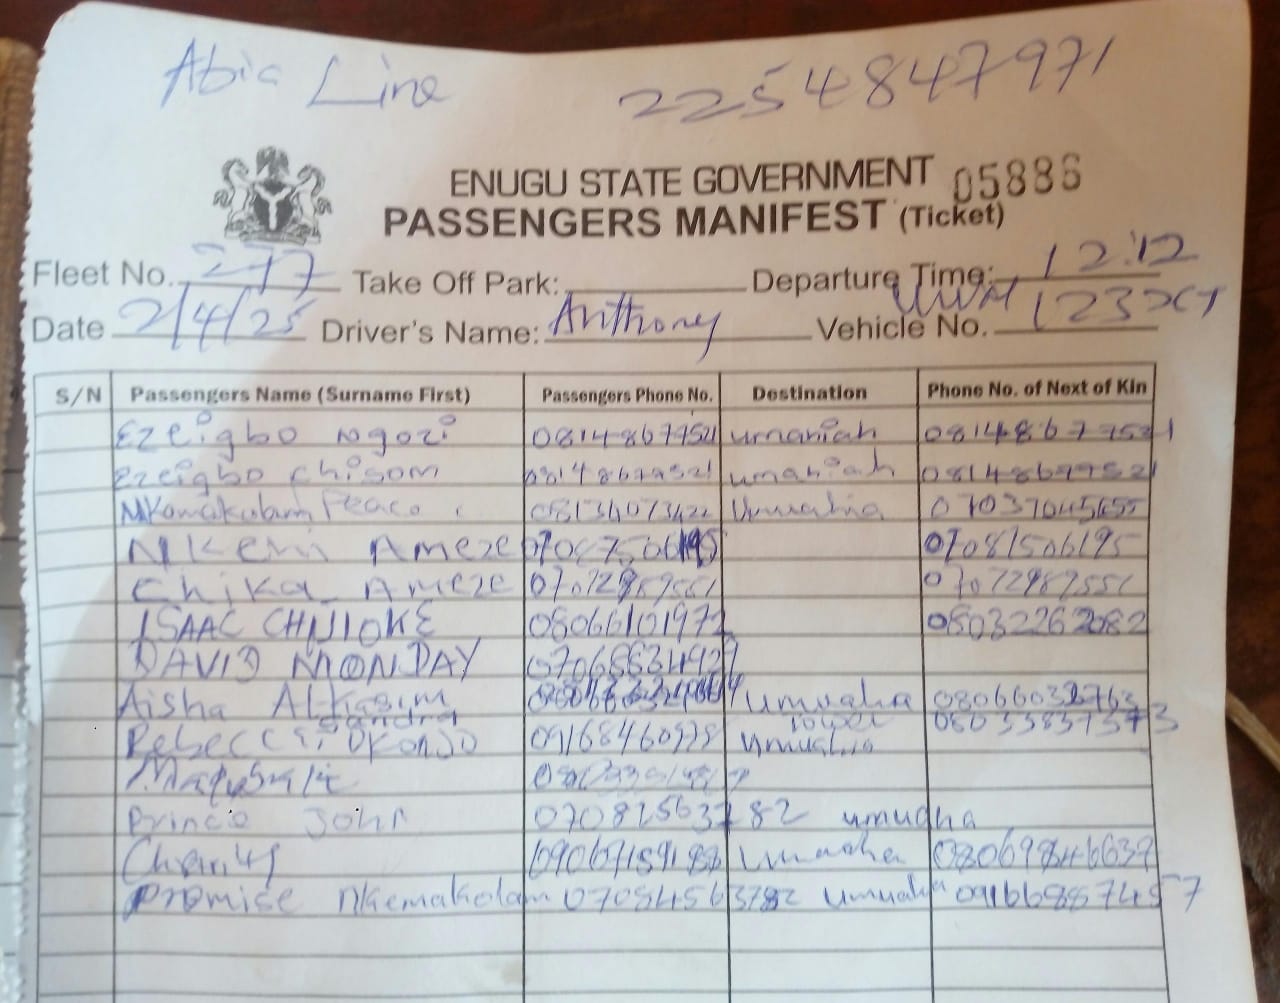 Abia Line 2254847971
ENUGU STATE GOVERNMENT 05886
PASSENGERS MANIFEST (Ticket)
Fleet No. 277 Take Off Park: Departure Time: 12:12
Date 2/4/25 Driver's Name: Anthony Vehicle No. UWN 123XT
S/N Passengers Name (Surname First) Passengers Phone No. Destination Phone No. of Next of Kin
Ezeigbo Ngozi 08148677521 umaniah 08148677521
Ezeigbo chisom 08148677521 umaniah 08148677521
Peace 08134073422 Umuahia 07037045655
Nkem Ameze 07081506195
Chika Ameze 07072987551 07072987551
ISAAC CHIJIOKE 08066101972 08032262082
DAVID MONDAY
Aisha Alkasim Umuaha
Sandra lower 08033837373
Rebecca Okonjo Umuahia
Prince John 07082563782 umuaha
Charity Umuaha
Promise Nkemakolam 07084563782 umuaha 09166887457